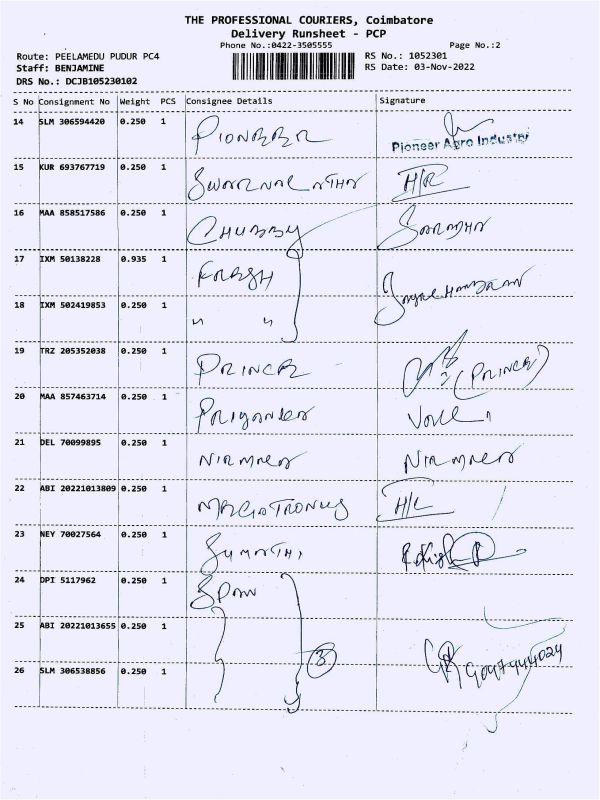 THE PROFESSIONAL COURIERS, Coimbatore
Delivery Runsheet - PCP
Phone No.:0422-3505555 Page No.:2
Route: PEELAMEDU PUDUR PC4 RS No.: 1052301
Staff: BENJAMINE RS Date: 03-Nov-2022
DRS No.: DCJB105230102
S No Consignment No Weight PCS Consignee Details Signature
14 SLM 306594420 0.250 1 PIONEER
Pioneer Agro Industry
15 KUR 693767719 0.250 1 H/R
16 MAA 858517586 0.250 1 CHUBBY
17 IXM 50138228 0.935 1 FRESH
18 IXM 502419853 0.250 1 " "
19 TRZ 205352038 0.250 1 PRINCE (PRINCE)
20 MAA 857463714 0.250 1
21 DEL 70099895 0.250 1 NIRMALA NIRMALA
22 ABI 20221013809 0.250 1 H/L
23 NEY 70027564 0.250 1 SUMATHI
24 DPI 5117962 0.250 1 SPAN
25 ABI 20221013655 0.250 1
3
26 SLM 306538856 0.250 1